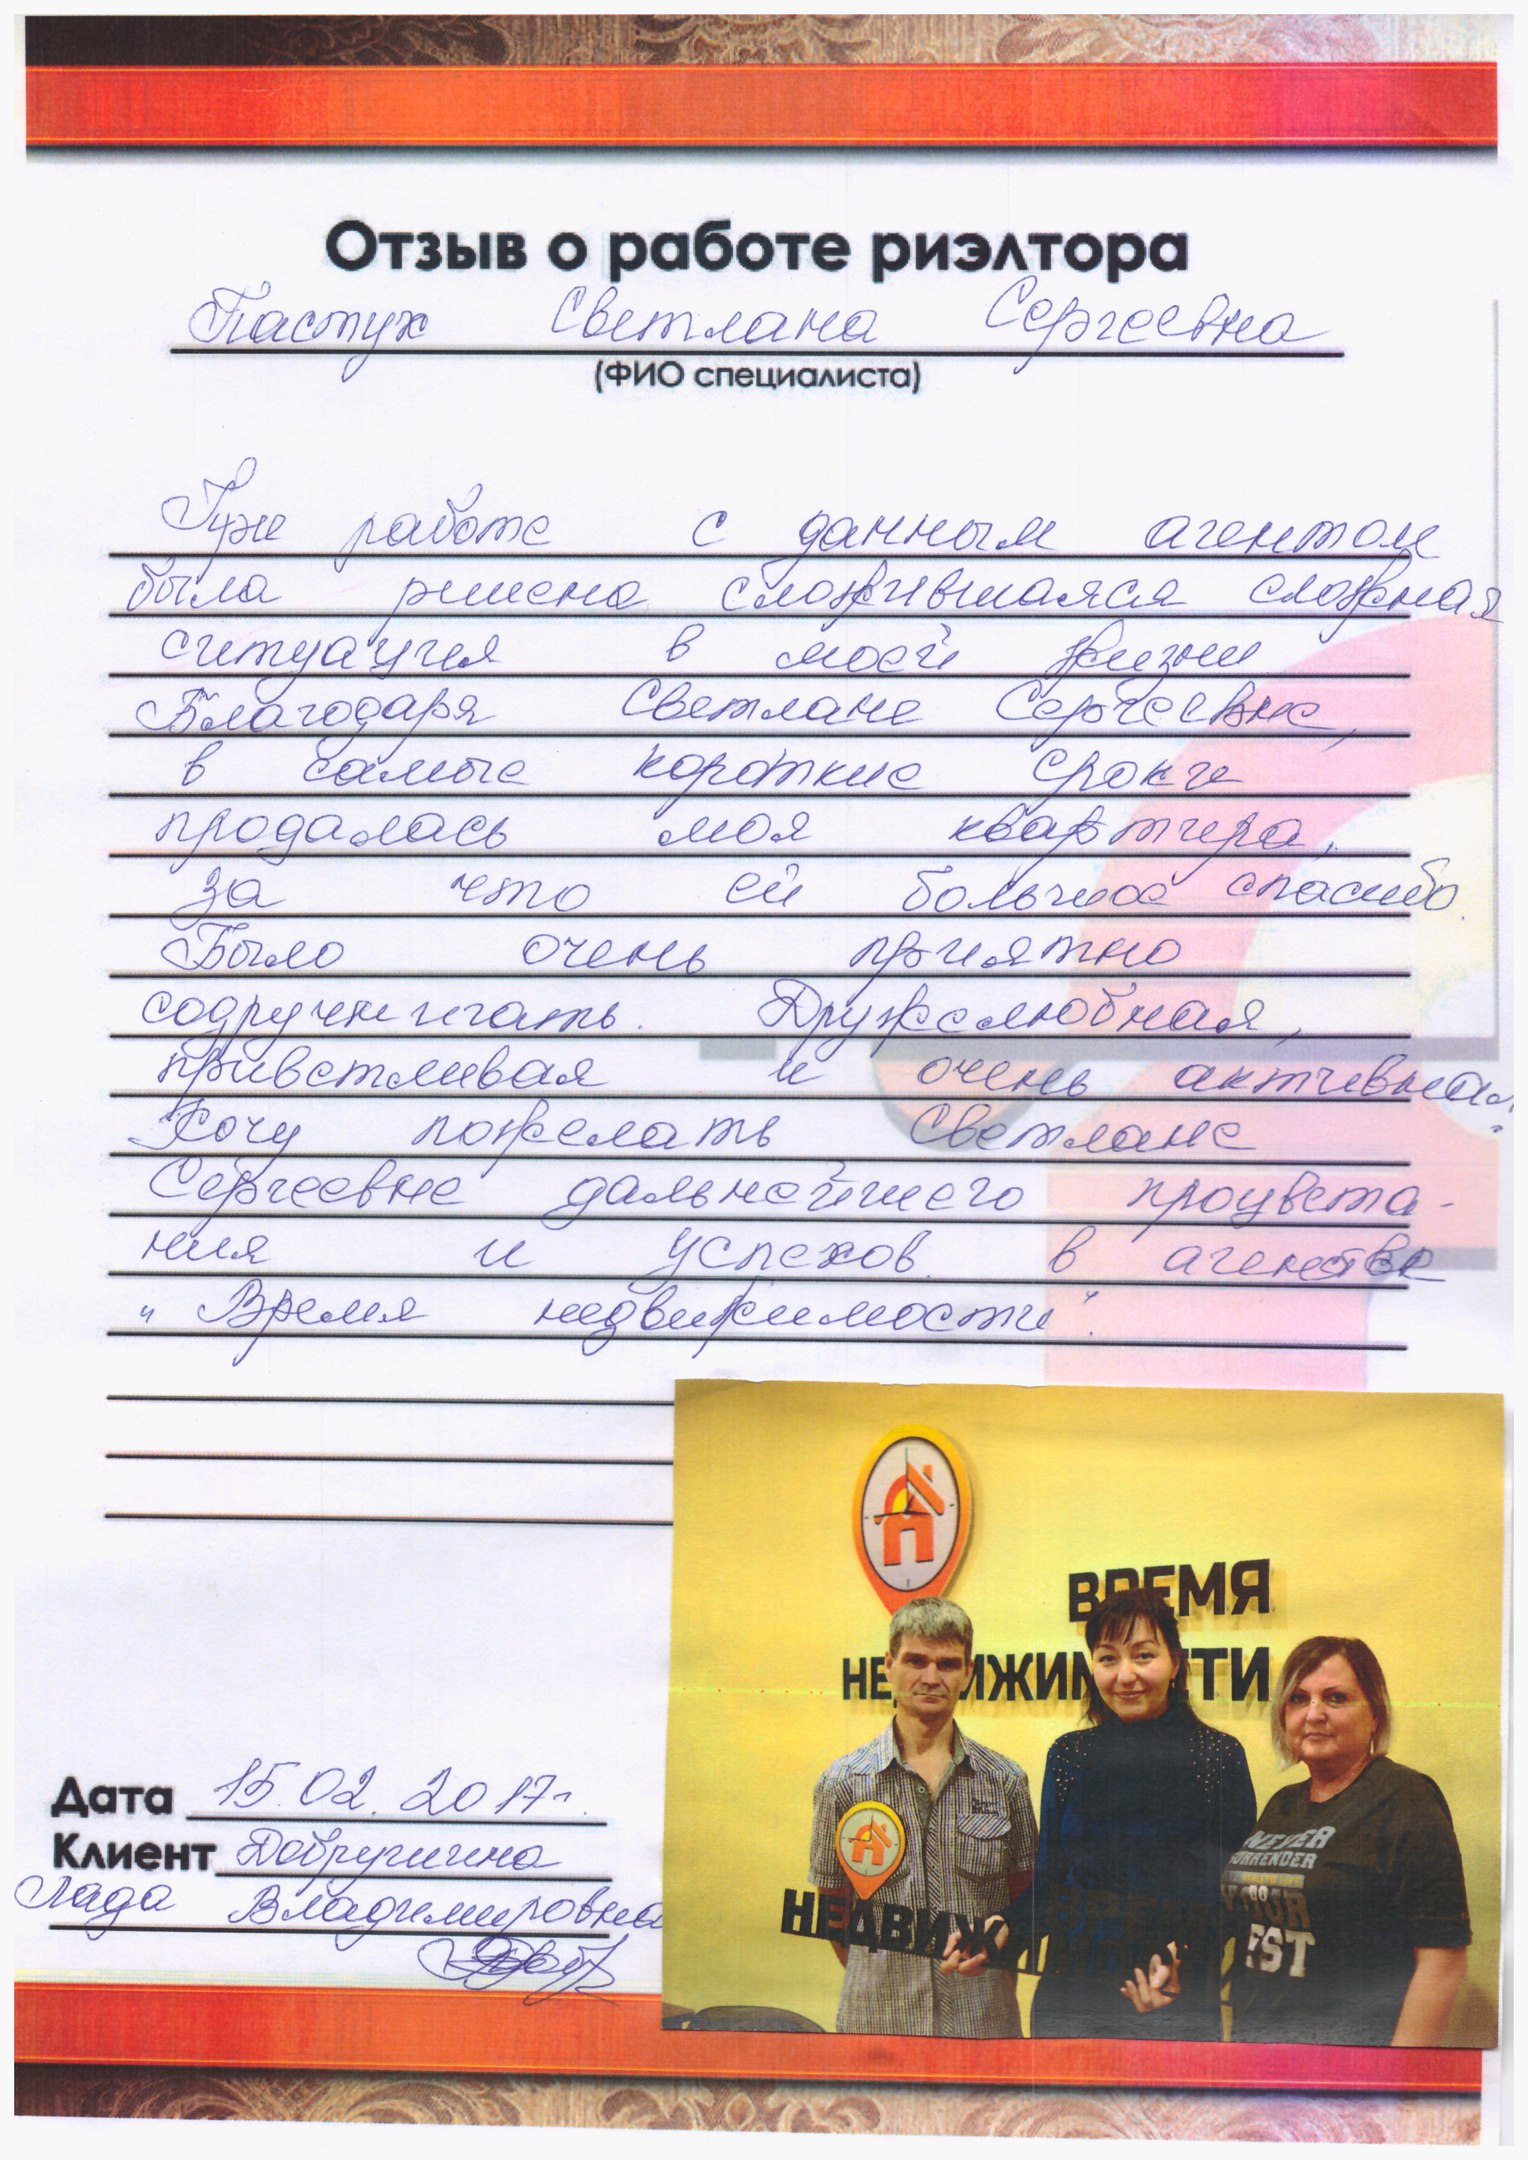 Отзыв о работе риэлтора
Пастух Светлана Сергеевна
(ФИО специалиста)
При работе с данным агентом
была решена сложившаяся сложная
ситуация в моей жизни
Благодаря Светлане Сергеевне,
в самые короткие сроки
продалась моя квартира,
за что ей большое спасибо.
Было очень приятно
содружничать. Дружелюбная,
приветливая и очень активная.
Хочу пожелать Светлане
Сергеевне дальнейшего процвета-
ния и успехов в агенстве
"Время недвижимости".
ВРЕМЯ
НЕДВИЖИМОСТИ
НЕДВИЖИМ
NEVER
SURRENDER
YOUR
Дата 15.02.2017г.
Клиент Добрушина
Лада Владимировна